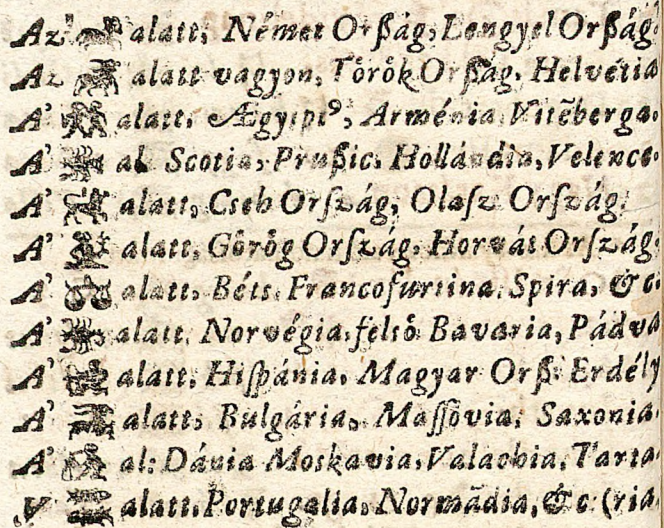 Az ♈ alatt, Német Orßág, Lengyel Orßág
Az ♉ alatt vagyon, Tôrôk Orßág, Helvétia
A' ♊ alatt, Ægyiptꝰ, Arménia Vitēberga.
A' ♋ al. Scotia, Prußic, Hollándia, Velence
A' ♌ alatt, Cseh Orſzág, Olaſz Orſzág,
A' ♍ alatt, Gôrôg Orſzág, Horvát Orſzág,
A' ♎ alatt, Béts, Francofurtina, Spira, &c.
A' ♏ alatt, Norvégia, felsô Bavaria, Pádva
A' ♐ alatt, Hiſpánia, Magyar Orß: Erdély
A' ♑ alatt, Bulgária, Maſſôvia, Saxonia
A' ♒ al: Dánia Moskavia, Valachia, Tarta-
A' ♓ alatt, Portugalia, Normādia, &c: (ria,